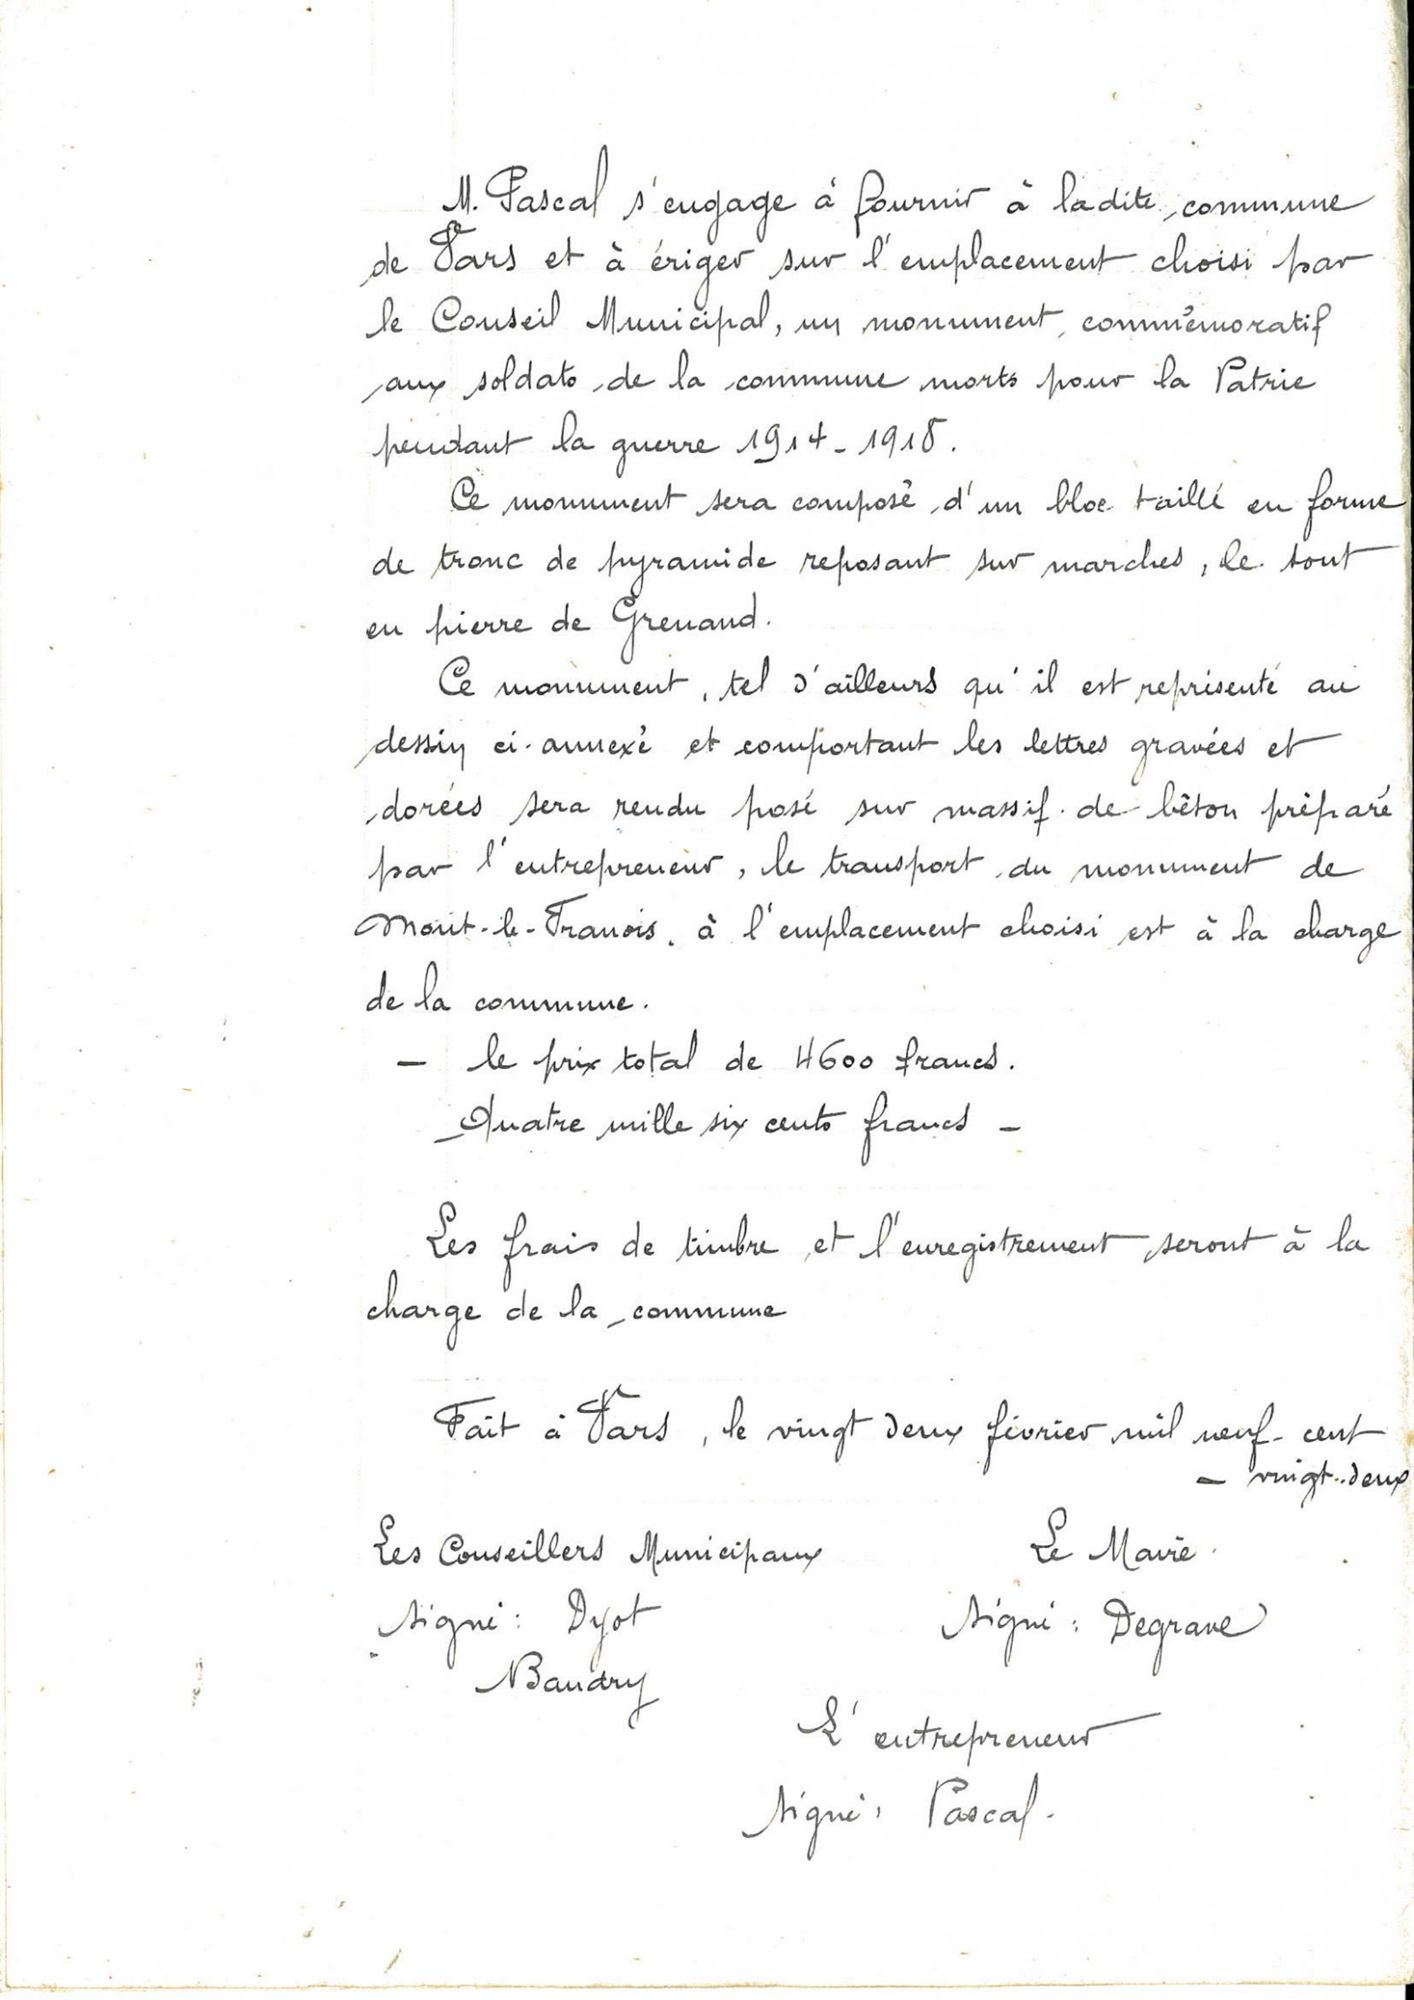 M. Pascal s'engage à fournir à ladite commune
de Vars et à ériger sur l'emplacement choisi par
le Conseil Municipal, un monument commémoratif
aux soldats de la commune morts pour la Patrie
pendant la guerre 1914-1918.
Ce monument sera composé d'un bloc taillé en forme
de tronc de pyramide reposant sur marches, le tout
en pierre de Grenand.
Ce monument, tel d'ailleurs qu'il est représenté au
dessin ci-annexé et comportant les lettres gravées et
dorées sera rendu posé sur massif de béton préparé
par l'entrepreneur, le transport du monument de
Mont-le-Franois. à l'emplacement choisi est à la charge
de la commune.
— le prix total de 4600 francs.
— Quatre mille six cents francs —
Les frais de timbre et l'enregistrement seront à la
charge de la commune
Fait à Vars, le vingt deux février mil neuf-cent
— vingt-deux
Les Conseillers Municipaux Le Maire.
Signé: Dyot Signé: Degrave
Baudry
L'entrepreneur
Signé: Pascal.